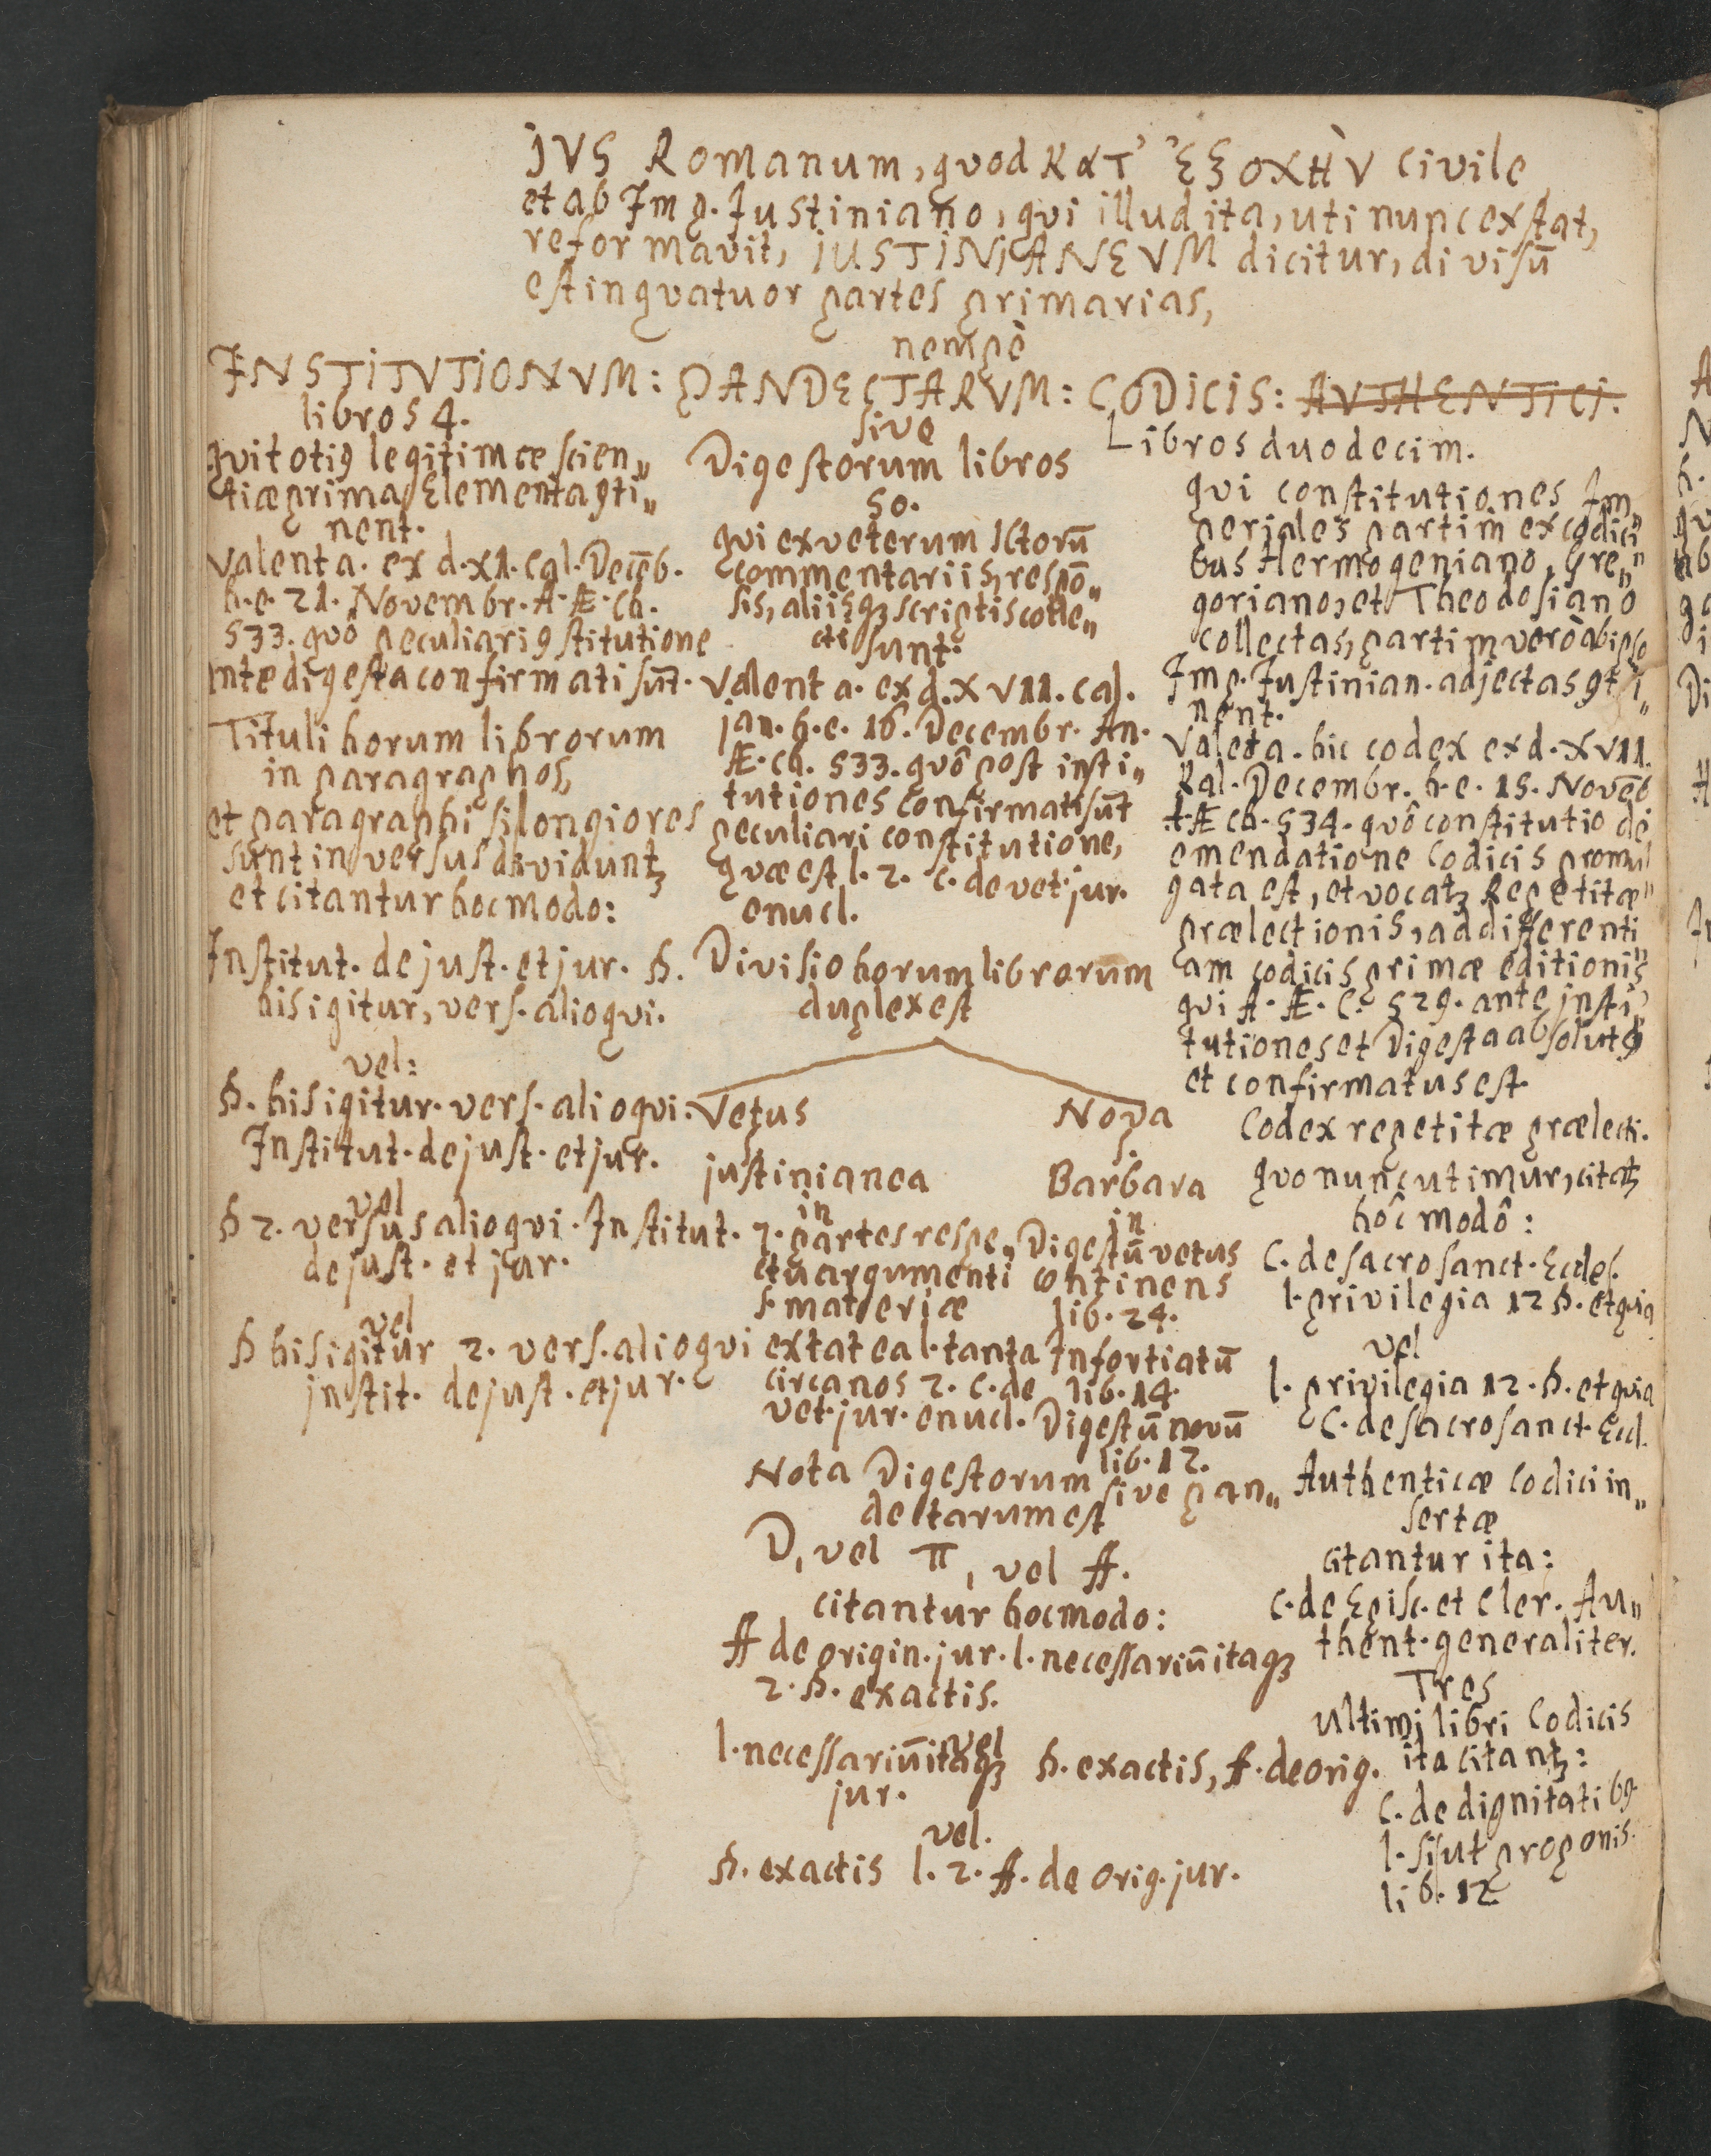 JVS Romanum, quod κατ' ἐξοχὴν civile
et ab Imp. Justiniano, qui illud ita, uti nunc exstat,
reformavit, JUSTINIANEVM dicitur, divisū
est in quatuor partes primarias,
nempè
INSTITVTIONVM: PANDECTARVM: CODICIS: AVTHENTICI.
libros 4.
qui totiꝰ legitimæ scien„
tiæ prima Elementa ꝯti„
nent.
Valent a. ex d. XI. Cal. Decēb.
h. e. 21. Novembr. A. Æ. Ch.
533. quô peculiari ꝯstitutione
ante digesta confirmati sūt.
Tituli horum librorum
in paragraphos,
et paragraphi si longiores
sunt in versus dividuntꝫ
et citantur hoc modo:
Institut. de just. et jur. §.
his igitur, vers. alioqui.
vel:
§. his igitur. vers. alioqui.
Institut. de just. et jur.
vel
§ 2. versus alioqui. Institut.
de just. et jur.
vel
§ his igitur 2. vers. alioqui
instit. de just. et jur.
sive
Digestorum libros
50.
qui ex veterum ICtorū
commentariis, respō„
sis, aliisqꝫ scriptis colle„
cti sunt.
Valent a. ex d. XVII. Cal.
jan. h. e. 16. Decembr. An.
Æ. Ch. 533. quô post insti„
tutiones confirmati sūt
peculiari constitutione,
quæ est l. 2. C. de vet. jur.
enucl.
Divisio horum librorum
duplex est
Vetus
justinianea
in
7. partes respe„
ctu argumenti
s. materiæ
extat ea l. tanta
circa nos 2. C. de
vet. jur. enucl.
Nova
Barbara
in
Digestū vetus
continens
lib. 24.
Infortiatū
lib. 14.
Digestū novū
lib. 12.
Nota Digestorum sive pan„
dectarum est
D, vel π, vel ff.
citantur hoc modo:
ff de origin. jur. l. necessariū itaqꝫ
2. §. exactis.
vel
l. necessariū itaqꝫ §. exactis, ff. de orig.
jur.
vel.
§. exactis l. 2. ff. de orig. jur.
Libros duodecim.
qui constitutiones Im„
periales partim ex codici„
bus Hermogeniano, Gre„
goriano, et Theodosiano
collectas, partim verò ab ipso
Imp. Justinian. adjectas ꝯti„
nent.
Valet a. hic codex ex d. XVII.
Kal. Decembr. h. e. 15. Novēb
A. Æ Ch. 534. quô constitutio de
emendatione Codicis promul„
gata est, et vocatꝫ Repetitæ
prælectionis, ad differenti„
am codicis primæ editionis
qui A. Æ. C. 529. ante insti„
tutiones et Digesta absolutꝰ
et confirmatus est.
Codex repetitæ prælecti.
quo nunc utimur, citatꝫ
hôc modô:
C. de sacrosanct. Eccles.
l. privilegia 12 §. et quia
vel
l. privilegia 12. §. et quia
C. de sacrosanct. Eccl.
Authenticæ Codici in„
sertæ
citantur ita:
C. de Episc. et Cler. Au„
thent. generaliter.
Tres
ultimi libri Codicis
ita citantꝫ:
C. de dignitatibꝰ
l. si ut proponis.
lib. 12